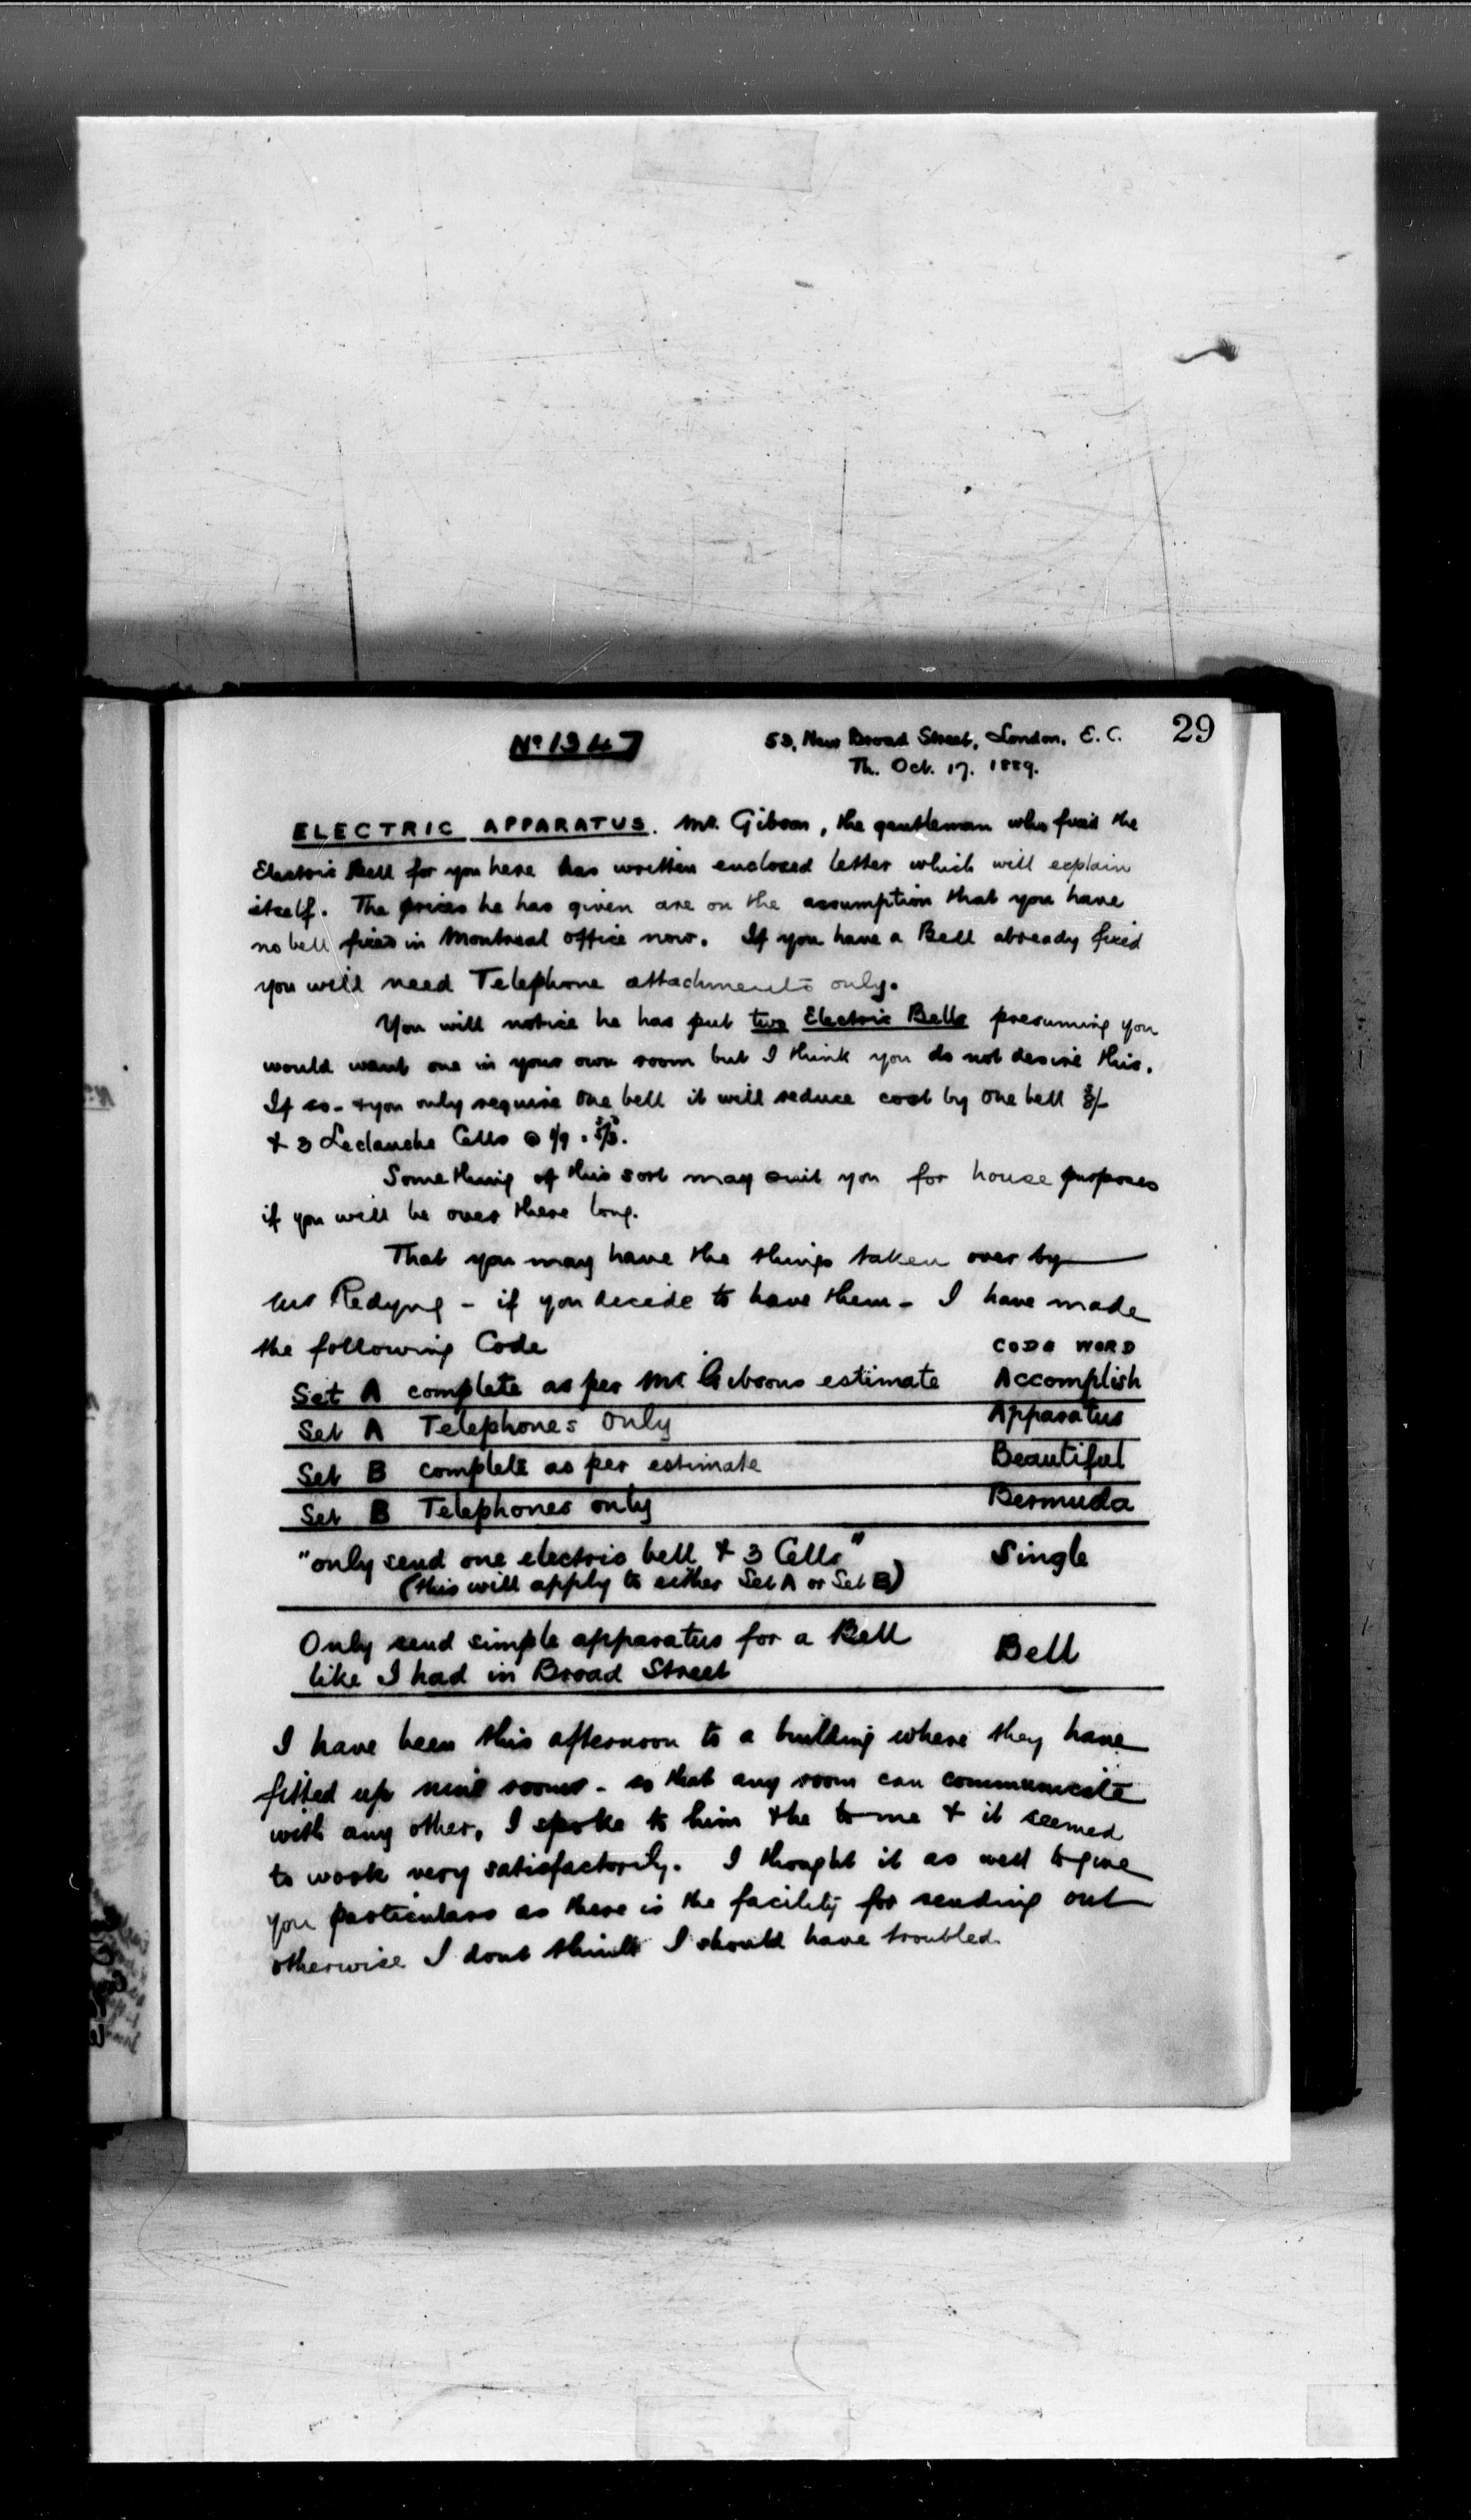 29
No 1347
53, New Broad Street, London, E.C.
Th. Oct. 17. 1889.
ELECTRIC APPARATUS. Mr. Gibson, the gentleman who fixed the
Electric Bell for you here has written enclosed letter which will explain
itself. The prices he has given are on the assumption that you have
no bell fixed in Montreal office now. If you have a Bell already fixed
you will need Telephone attachments only.
You will notice he has put two Electric Bells presuming you
would want one in your own room but I think you do not desire this.
If so - & you only require one bell it will reduce cost by one bell
& 3 Leclanche Cells @ 1/9
Something of this sort may suit you for house purposes
if you will be over there long.
That you may have the things taken over by
- if you decide to have them - I have made
the following Code
CODE WORD
Set A complete as per Mr Gibsons estimate Accomplish
Set A Telephones only Apparatus
Set B complete as per estimate Beautiful
Set B Telephones only Bermuda
"only send one electric bell & 3 Cells" Single
(this will apply to either Set A or Set B)
Only send simple apparatus for a Bell
like I had in Broad Street Bell
I have been this afternoon to a building where they have
fitted up nine rooms - so that any room can communicate
with any other, I spoke to him & he to me & it seemed
to work very satisfactorily. I thought it as well to give
you particulars as there is the facility for sending out
otherwise I dont think I should have troubled